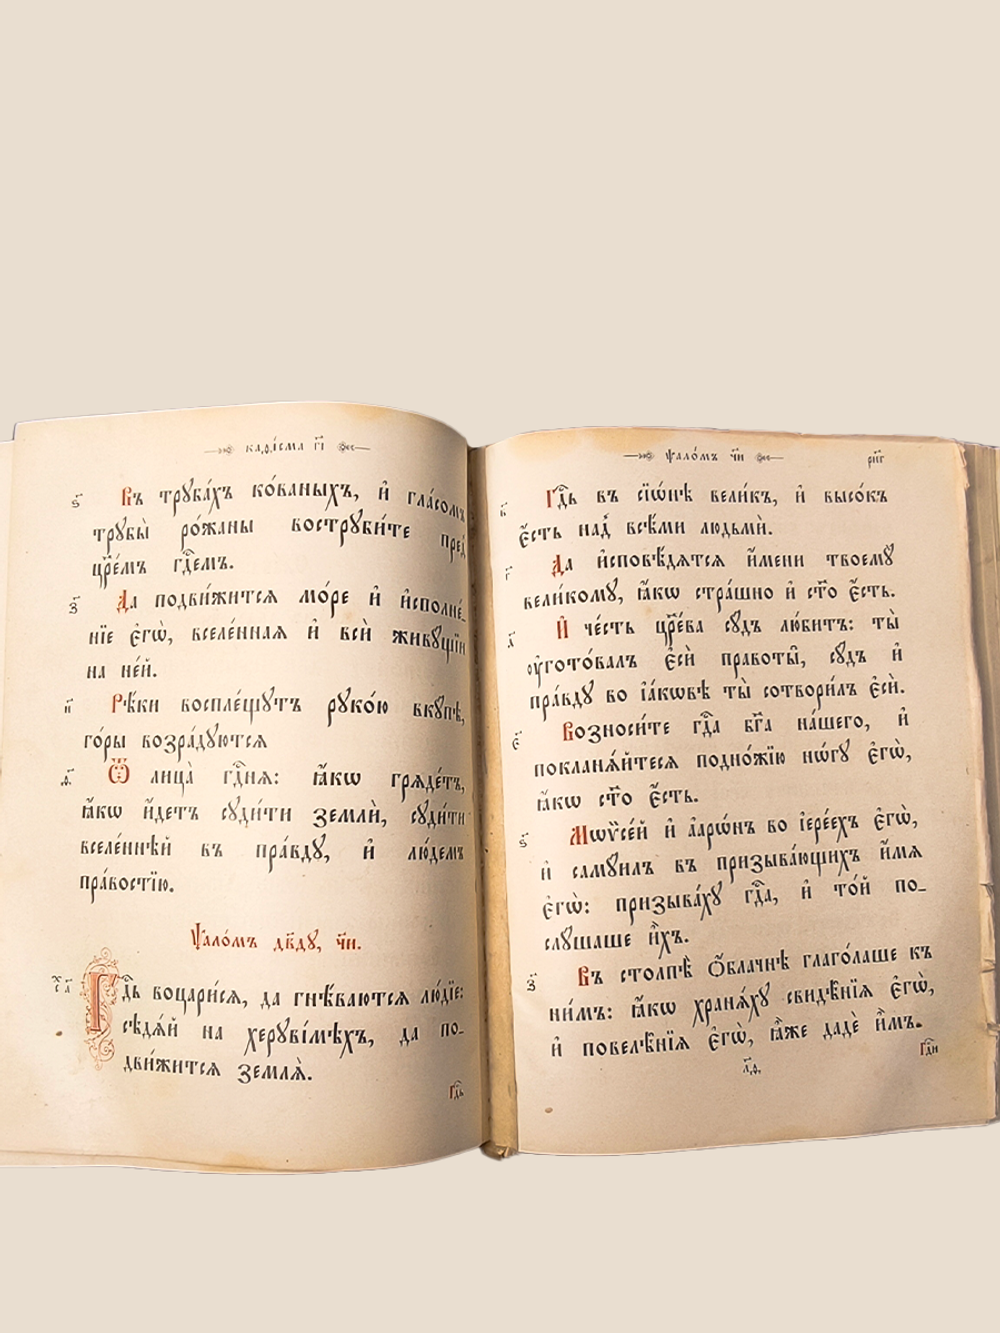 каѳі́сма г҃і
ѕ҃ Въ трꙋба́хъ ко́ваныхъ, и҆ гла́сомъ
трꙋбы̀ ро́жаны вострꙋби́те пред̾
цр҃е́мъ гдⷭ҇емъ.
з҃ Да подви́жится мо́ре и҆ и҆сполне́_
нїе є҆гѡ̀, вселе́нная и҆ всѝ живꙋ́щїи
на не́й.
и҃ Рѣ́ки воспле́щꙋтъ рꙋко́ю вкꙋ́пѣ,
го́ры возра́дꙋются
ѳ҃ Ѿ лица̀ гдⷭ҇ня: ꙗ҆́кѡ гряде́тъ,
ꙗ҆́кѡ и҆́детъ сꙋди́ти землѝ, сꙋди́ти
вселе́ннѣй въ пра́вдꙋ, и҆ лю́демъ
пра́востїю.
Ѱало́мъ дв҃дꙋ, ч҃и.
а҃ Гдⷭ҇ь воцари́ся, да гнѣ́ваются лю́дїе:
сѣдѧ́й на херꙋві́мѣхъ, да по_
дви́жится землѧ̀.
Гдⷭ҇ь
ѱало́мъ ч҃и
рн҃г
в҃ Гдⷭ҇ь въ сїѡ́нѣ вели́къ, и҆ высо́къ
є҆́сть над̾ всѣ́ми людьмѝ.
г҃ Да и҆сповѣ́дятся и҆́мени твоемꙋ̀
вели́комꙋ, ꙗ҆́кѡ стра́шно и҆ ст҃о є҆́сть.
д҃ И҆ че́сть цр҃е́ва сꙋ́дъ лю́битъ: ты̀
ᲂу҆гото́валъ є҆сѝ правоты̑, сꙋ́дъ и҆
пра́вдꙋ во і҆а́кѡвѣ ты̀ сотвори́лъ є҆сѝ.
є҃ Возноси́те гдⷭ҇а бг҃а на́шего, и҆
покланѧ́йтеся подно́жїю но́гꙋ є҆гѡ̀,
ꙗ҆́кѡ ст҃о є҆́сть.
ѕ҃ Мѡѷсе́й и҆ а҆арѡ́нъ во і҆ере́ехъ є҆гѡ̀,
и҆ самꙋи́лъ въ призыва́ющихъ и҆́мя
є҆гѡ̀: призыва́хꙋ гдⷭ҇а, и҆ то́й по_
слꙋ́шаше и҆́хъ.
з҃ Въ столпѣ̀ ѻ҆́блачнѣ глаго́лаше къ
ни́мъ: ꙗ҆́кѡ хранѧ́хꙋ свидѣ́нїя є҆гѡ̀,
и҆ повелѣ́нїя є҆гѡ̀, ꙗ҆̀же дадѐ и҆̀мъ.
л҃ѳ.
Гдⷭ҇и